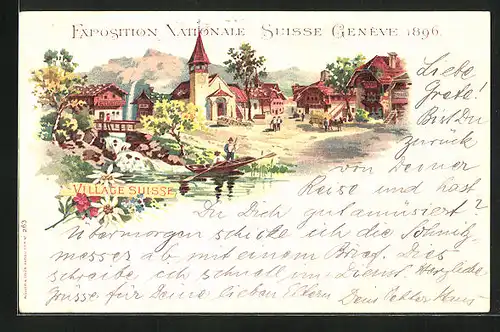 EXPOSITION NATIONALE SUISSE GENÈVE 1896.
VILLAGE SUISSE
Liebe
Grete!
Bist Du
zurück
von Deiner
Reise und hast
Du Dich gut amüsiert?
Übermorgen schicke ich die Schnitz-
messer ab mit einem Brief. Dies
schreibe ich schnell im Dienst. Herzliche
Grüsse für Deine lieben Eltern Dein Vetter Hans
263